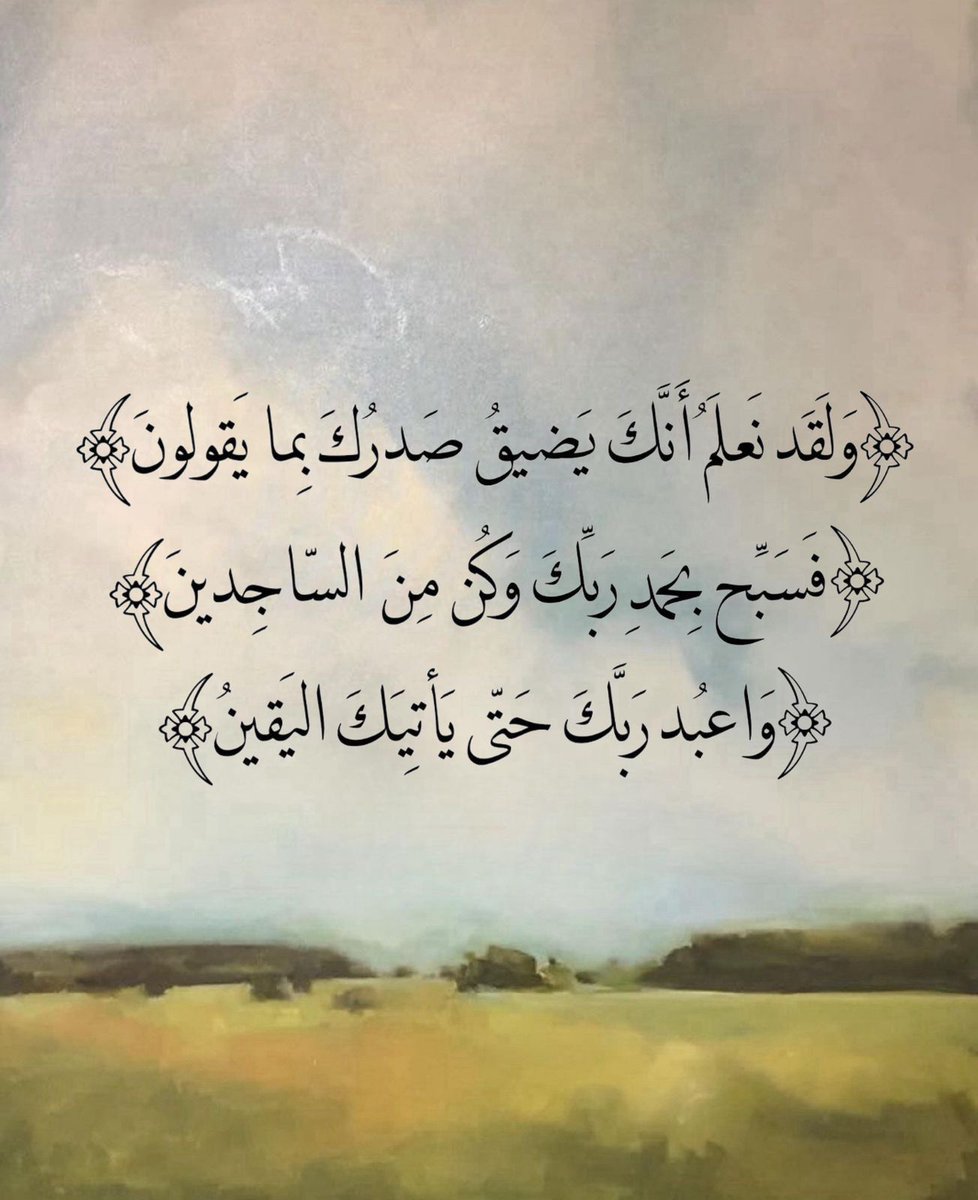 ﴿وَلَقَد نَعلَمُ أَنَّكَ يَضيقُ صَدرُكَ بِما يَقولونَ﴾
﴿فَسَبِّح بِحَمدِ رَبِّكَ وَكُن مِنَ السّاجِدينَ﴾
﴿وَاعبُد رَبَّكَ حَتّى يَأتِيَكَ اليَقينُ﴾